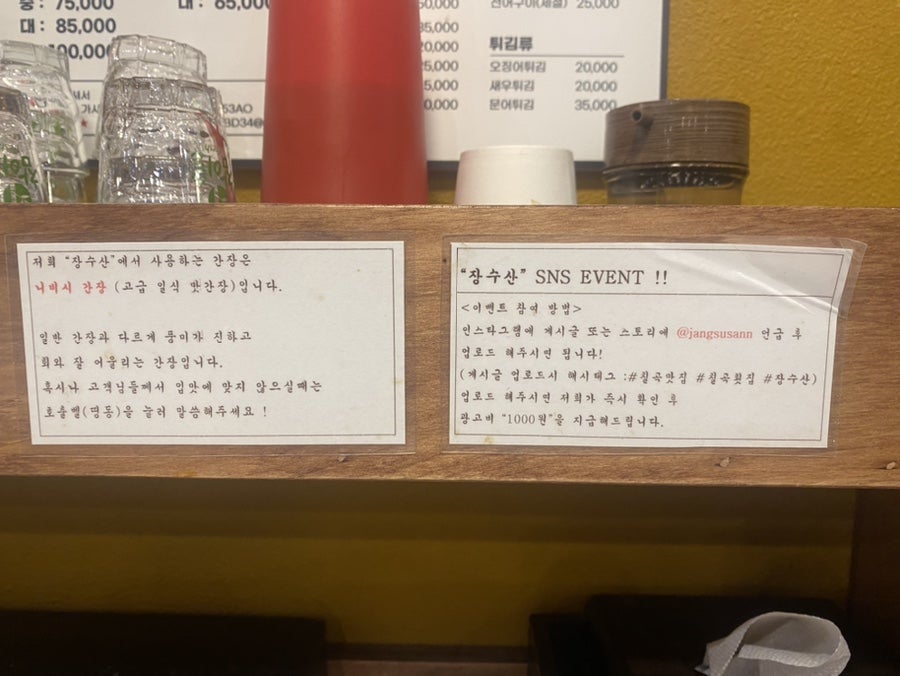 중 : 75,000
대 : 85,000
100,000
대 : 65,000
53AO
BD34@
전어구이(세절) 25,000
튀김류
오징어튀김 20,000
새우튀김 20,000
문어튀김 35,000
저희 "장수산"에서 사용하는 간장은
니비시 간장 (고급 일식 맛간장)입니다.
일반 간장과 다르게 풍미가 진하고
회와 잘 어울리는 간장입니다.
혹시나 고객님들께서 입맛에 맞지 않으실때는
호출벨(띵동)을 눌러 말씀해주세요 !
"장수산" SNS EVENT !!
<이벤트 참여 방법>
인스타그램에 게시글 또는 스토리에 @jangsusann 언급 후
업로드 해주시면 됩니다!
(게시글 업로드시 해시태그 :#칠곡맛집 #칠곡횟집 #장수산)
업로드 해주시면 저희가 즉시 확인 후
광고비 "1000원"을 지급해드립니다.